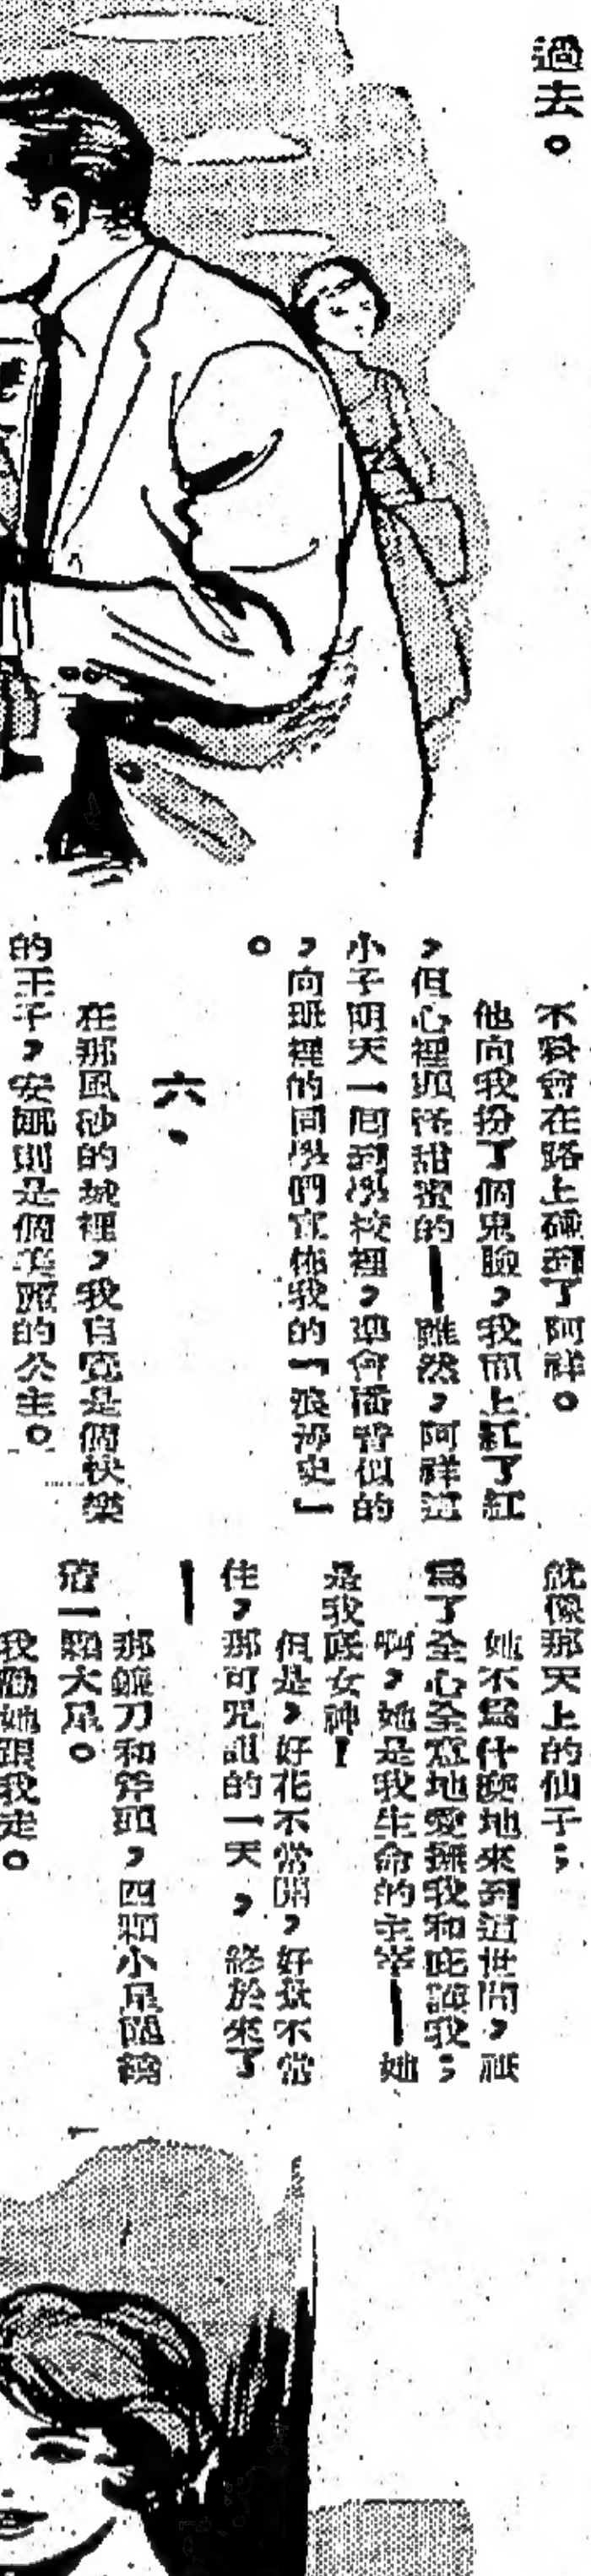 過去。
不料會在路上碰到了阿祥。
他向我扮了個鬼臉,我面上紅了紅
,但心裡頭怪甜蜜的——雖然,阿祥這
小子明天一回到學校裡,準會播音似的
,向班裡的同學們宣佈我的「浪漫史」
。
六、
在那風砂的城裡,我自覺是個快樂
的王子,安妮則是個美麗的公主。
就像那天上的仙子;
她不爲什麼地來到這世間,祇
爲了全心全意地愛撫我和庇護我;
啊,她是我生命的主宰——她
是我底女神!
但是,好花不常開,好景不常
住,那可咒詛的一天,終於來了
——
那鐮刀和斧頭,四顆小星圍繞
着一顆大星。
我勸她跟我走。